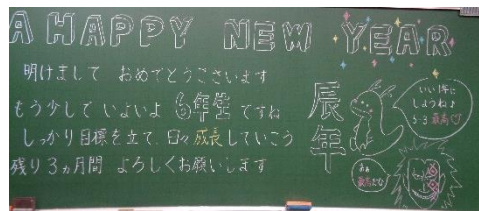 A HAPPY NEW YEAR
明けまして おめでとうございます
もう少しで いよいよ 6年生 ですね
しっかり目標を立て、日々成長していこう
残り3ヵ月間 よろしくお願いします
辰年
いい1年に
しようね♪
5-3 最高♡
あぁ
最高だな